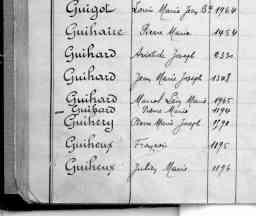 Guigot Louis Marie Jean Bte 1964
Guihaire Pierre Marie 1454
Guihard Aristide Joseph 233
Guihard Jean Marie Joseph 1308
Guihard Marcel Marie 1965
Guihard Pierre Marie 1194
Guihery Pierre Marie Joseph 1790
Guiheux François 1195
Guiheux Julien Marie 1196